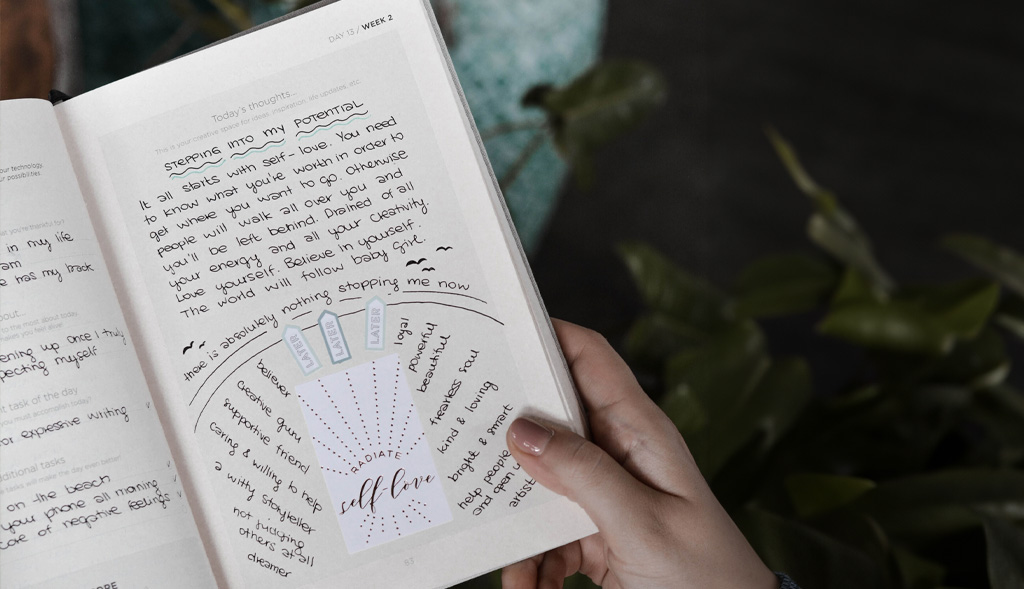 our technology,
ur possibilities.
in my life
am
e has my back
about...
ening up once I truly
pecting myself
t task of the day
or expressive writing
ditional tasks
on the beach
your phone all morning
care of negative feelings
DAY 13 / WEEK 2
Today's thoughts...
This is your creative space for ideas, inspiration, life updates, etc.
STEPPING INTO MY POTENTIAL
It all starts with self-love. You need
to know what you're worth in order to
get where you want to go. Otherwise
people will walk all over you and
you'll be left behind. Drained of all
your energy and all your creativity.
Love yourself. Believe in yourself.
The world will follow baby girl.
there is absolutely nothing stopping me now
LAYER
LAYER
LAYER
believer
creative guru
supportive friend
caring & willing to help
a witty storyteller
not judging
others at all
dreamer
RADIATE
self-love
loyal
powerful
beautiful
fearless soul
kind & loving
bright & smart
help people
and open
artist
57